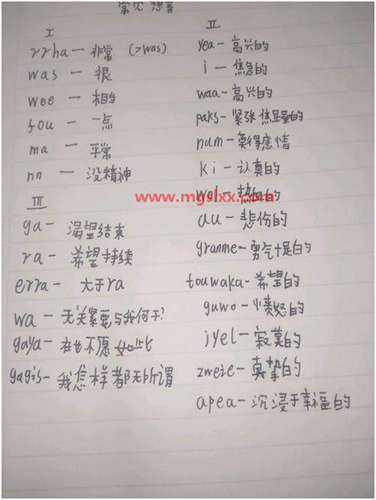 常见想音
I
rrha — 非常 (>was)
was — 很
wee — 相当
fou — 一点
ma — 平常
nn — 没精神
III
ga — 渴望结束
ra — 希望持续
erra — 大于ra
wa — 无关紧要与我何干?
gaya — 在也不愿如此
gagis — 我怎样都无所谓
II
yea — 高兴的
i — 焦急的
waa — 高兴的
paks — 紧张焦虑的
num — 莫得感情
ki — 认真的
wel — 热血的
au — 悲伤的
granme — 勇气十足的
touwaka — 希望的
guwo — 愤怒的
jyel — 寂寞的
zweie — 真挚的
apea — 沉浸于幸福的
www.mgslxx.com